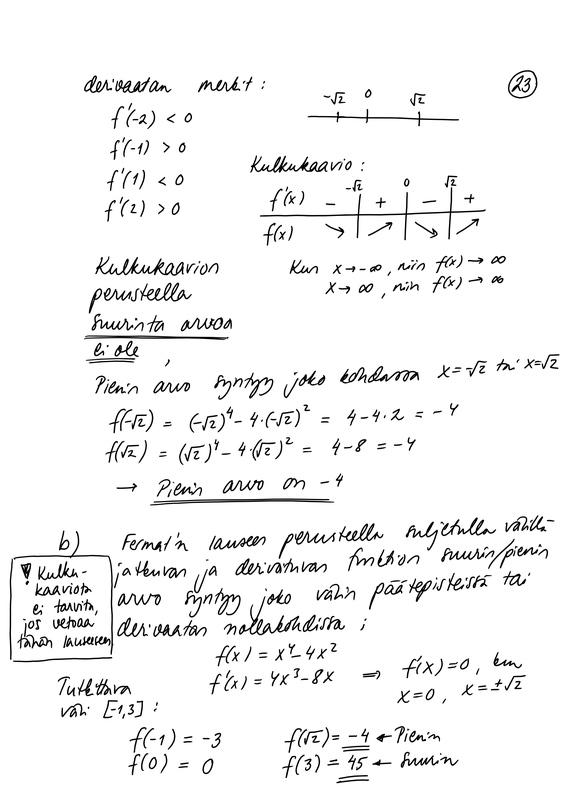 23
derivaatan merkit :
f'(-2) < 0
f'(-1) > 0
f'(1) < 0
f'(2) > 0
-√2 0 √2
Kulkukaavio :
-√2 0 √2
f'(x) - + - +
f(x) ↘ ↗ ↘ ↗
Kun x → -∞, niin f(x) → ∞
x → ∞, niin f(x) → ∞
Kulkukaavion
perusteella
suurinta arvoa
ei ole ,
Pienin arvo syntyy joko kohdassa x=√2 tai x=√2
f(-√2) = (-√2)⁴ - 4·(-√2)² = 4-4·2 = -4
f(√2) = (√2)⁴ - 4·(√2)² = 4-8 = -4
→ Pienin arvo on -4
b) Fermat'n lauseen perusteella suljetulla välillä
jatkuvan ja derivoituvan funktion suurin/pienin
arvo syntyy joko välin päätepisteissä tai
derivaatan nollakohdissa ;
! Kulku-
kaaviota
ei tarvita,
jos vetoaa
tähän lauseeseen
f(x) = x⁴-4x²
f'(x) = 4x³-8x ⇒ f'(x)=0, kun
x=0, x=±√2
Tutkittava
väli [-1,3] :
f(-1) = -3 f(√2) = -4 ← Pienin
f(0) = 0 f(3) = 45 ← Suurin